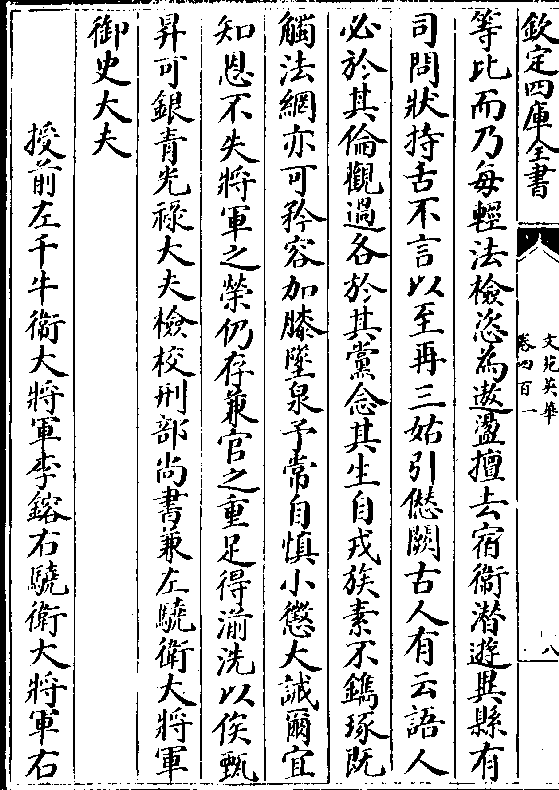 欽定四庫全書
文苑英華
卷四百一
八
等比而乃每輕法檢恣為遨盪擅去宿衞潜遊異縣有
司問狀持舌不言以至再三姑引愆闕古人有云語人
必於其倫觀過各於其黨念其生自戎族素不鐫琢既
觸法網亦可矜容加膝墜泉予常自慎小懲大誡爾宜
知恩不失將軍之榮仍存兼官之重足得湔洗以俟甄
昇可銀青光祿大夫檢校刑部尚書兼左驍衛大將軍
御史大夫
授前左千牛衞大將軍李鎔右驍衛大將軍右